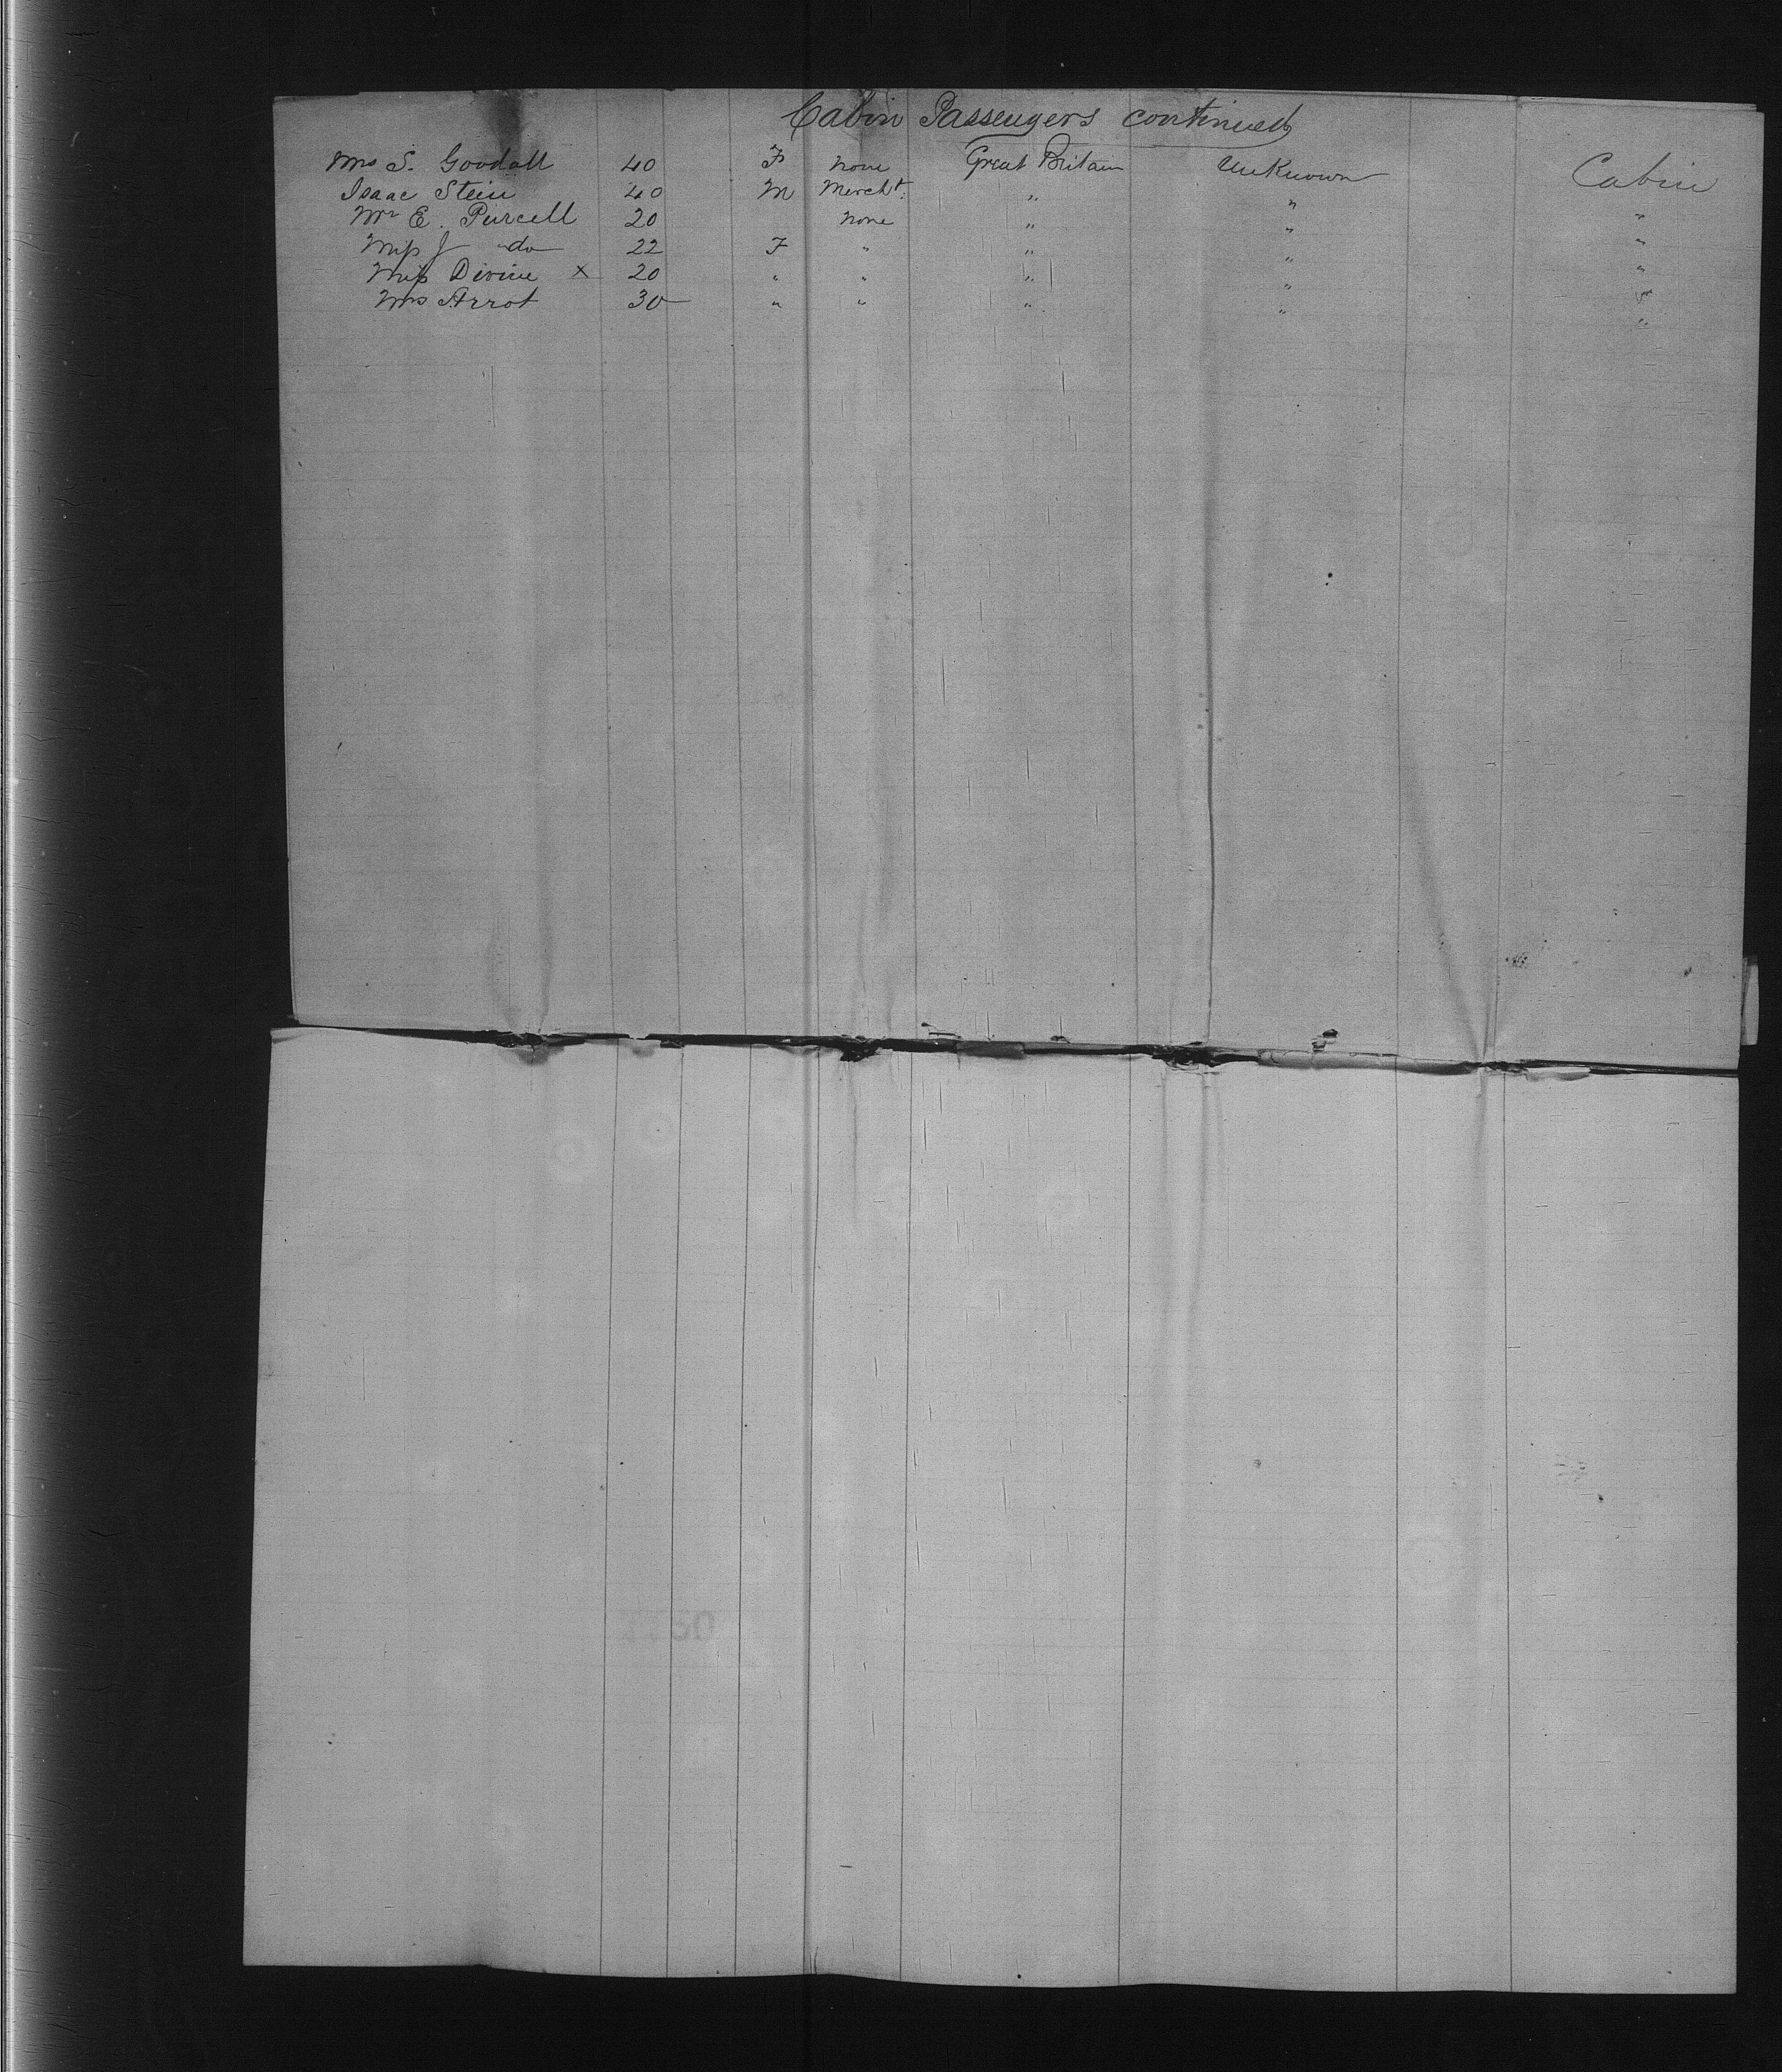 Cabin Passengers continued
Mrs S. Goodall 40 F none Great Britain Unknown Cabin
Isaac Stein 40 M Mercht. " " "
Mr E. Purcell 20 none " " "
Miss J do 22 F " " " "
Miss Divine x 20 " " " " "
Mrs Arrot 30 " " " " "